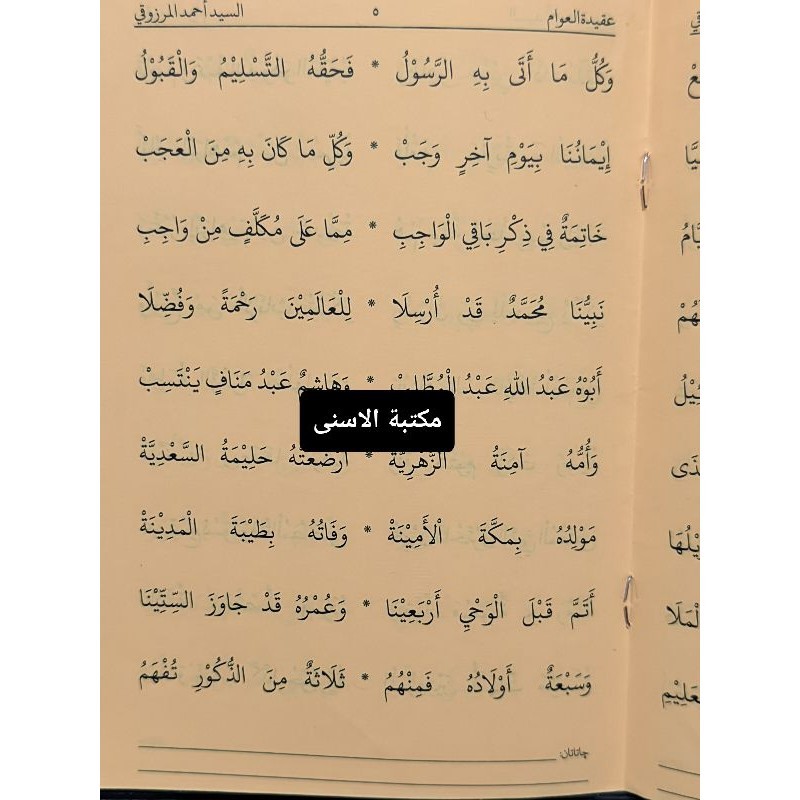 عقيدة العوام ٥ السيد أحمد المرزوقي
وَكُلُّ مَا أَتَى بِهِ الرَّسُوْلُ * فَحَقُّهُ التَّسْلِيْمُ وَالْقَبُوْلُ
إِيْمَانُنَا بِيَوْمِ آخِرٍ وَجَبْ * وَكُلِّ مَا كَانَ بِهِ مِنَ الْعَجَبْ
خَاتِمَةٌ فِي ذِكْرِ بَاقِي الْوَاجِبِ * مِمَّا عَلَى مُكَلَّفٍ مِنْ وَاجِبِ
نَبِيُّنَا مُحَمَّدٌ قَدْ أُرْسِلَا * لِلْعَالَمِيْنَ رَحْمَةً وَفُضِّلَا
أَبُوْهُ عَبْدُ اللهِ عَبْدُ الْمُطَّلِبْ * وَهَاشِمٌ عَبْدُ مَنَافٍ يَنْتَسِبْ
مكتبة الاسنى
وَأُمُّهُ آمِنَةُ الزُّهْرِيَّةْ * أَرْضَعَتْهُ حَلِيْمَةُ السَّعْدِيَّةْ
مَوْلِدُهُ بِمَكَّةَ الْأَمِيْنَةْ * وَفَاتُهُ بِطَيْبَةَ الْمَدِيْنَةْ
أَتَمَّ قَبْلَ الْوَحْيِ أَرْبَعِيْنَا * وَعُمْرُهُ قَدْ جَاوَزَ السِّتِّيْنَا
وَسَبْعَةٌ أَوْلَادُهُ فَمِنْهُمُ * ثَلَاثَةٌ مِنَ الذُّكُوْرِ تُفْهَمُ
چاتاتان: